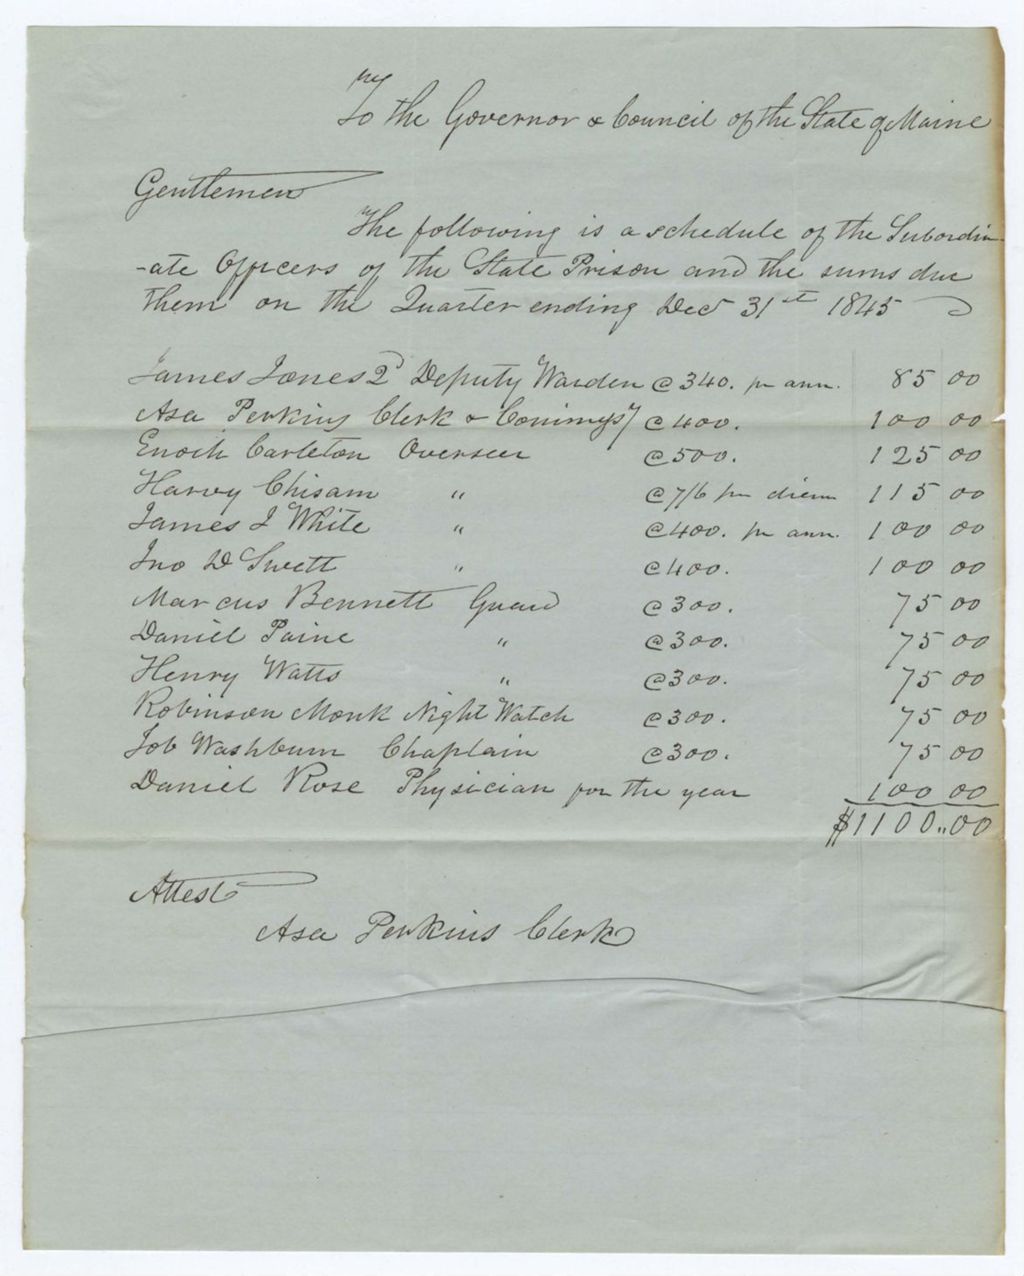 To the Governor & Council of the State of Maine
Gentlemen
The following is a schedule of the Subordin-
-ate Officers of the State Prison and the sums due
them on the Quarter ending Dec 31st 1845
James Jones 2d Deputy Warden @ 340. pr ann. 85 00
Asa Perkins Clerk & @ 400. 100 00
Enoch Carleton Overseer @ 500. 125 00
Harvey Chisam " @ 7/6 pr diem 115 00
James J White " @ 400. pr ann. 100 00
Jno D Swett " @ 400. 100 00
Marcus Bennett Guard @ 300. 75 00
Daniel Paine " @ 300. 75 00
Henry Watts " @ 300. 75 00
Robinson Monk Night Watch @ 300. 75 00
Job Washburn Chaplain @ 300. 75 00
Daniel Rose Physician for the year 100 00
$1100,,00
Attest
Asa Perkins Clerk